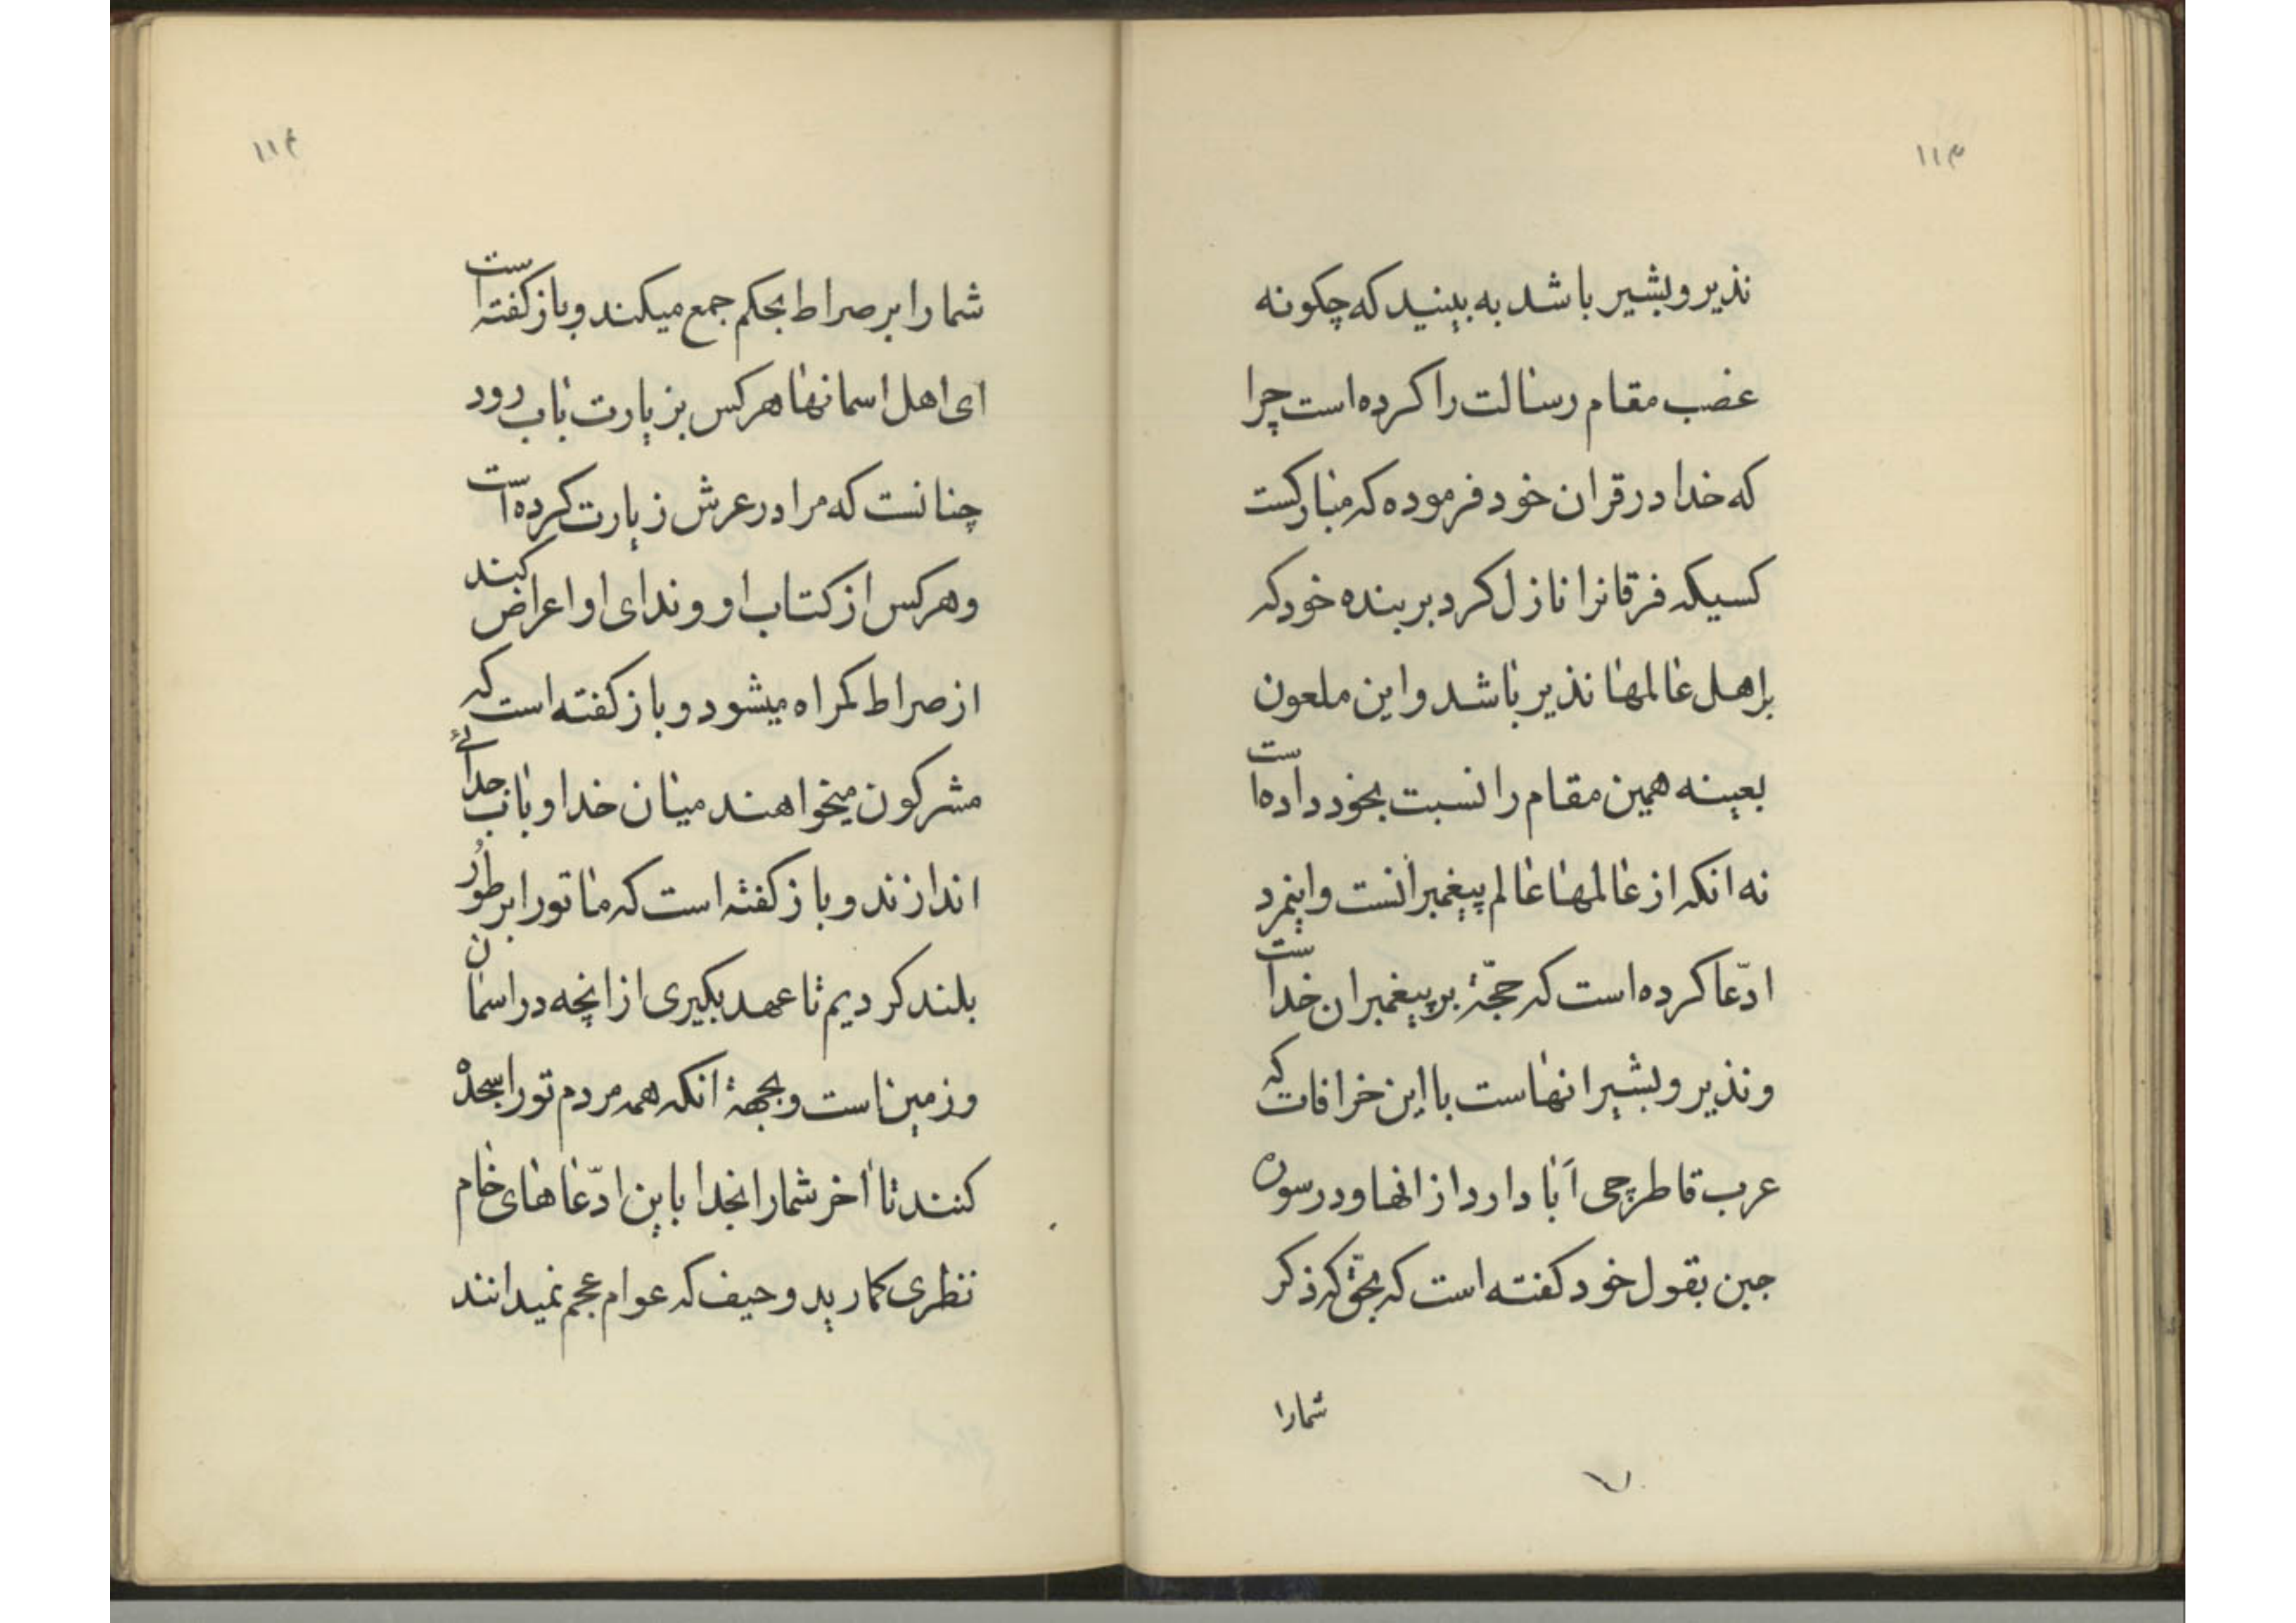 ۱۱۳
نذیر و بشیر باشد به بینید که چکونه
غصب مقام رسالت را کرده است چرا
که خدا در قران خود فرموده که مبارکست
کسیکه فرقانرا نازل کرد بر بنده خود که
براهل عالمها نذیر باشد و این ملعون
بعینه همین مقام را نسبت بخود داده است
نه انکه از عالمها عالم پیغمبرانست و اینمرد
ادّعا کرده است که حجّة بر پیغمبران خدا است
و نذیر و بشیر انهاست با این خرافات که
عرب قاطرچی آبا دارد از انها و در سوره
جین بقول خود کفته است که بحق که ذکر
شمارا
۱۱۴
شما را بر صراط بحکم جمع میکند و باز کفته است
ای اهل اسمانها هر کس بزیارت باب رود
چنانست که مرا در عرش زیارت کرده است
و هر کس از کتاب او و ندای او اعراض کند
از صراط کمراه میشود و باز کفته است که
مشرکون میخواهند میان خدا و باب جدائی
اندازند و باز کفته است که ما تو را بر طور
بلند کردیم تا عهد بکیری از انچه در اسمان
و زمین است و بجهة انکه همه مردم تو را سجده
کنند تا اخر شما را بخدا باین ادّعاهای خام
نظری کمارید و حیف که عوام عجم نمیدانند